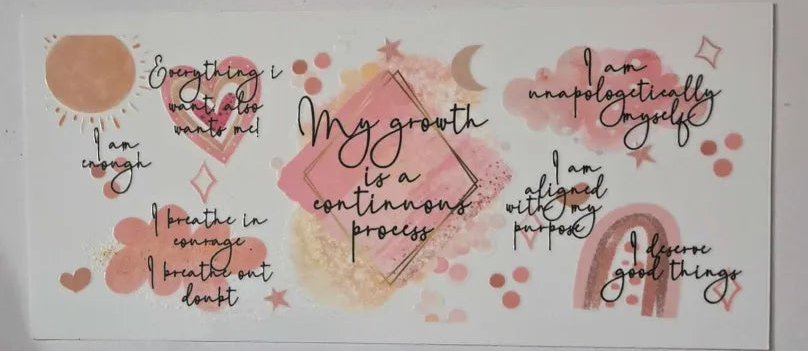 Everything i
want also
wants me!
I am
enough
I breathe in
courage
I breathe out
doubt
My growth
is a
continuous
process
I am
unapologetically
myself
I am
aligned
with my
purpose
I deserve
good things